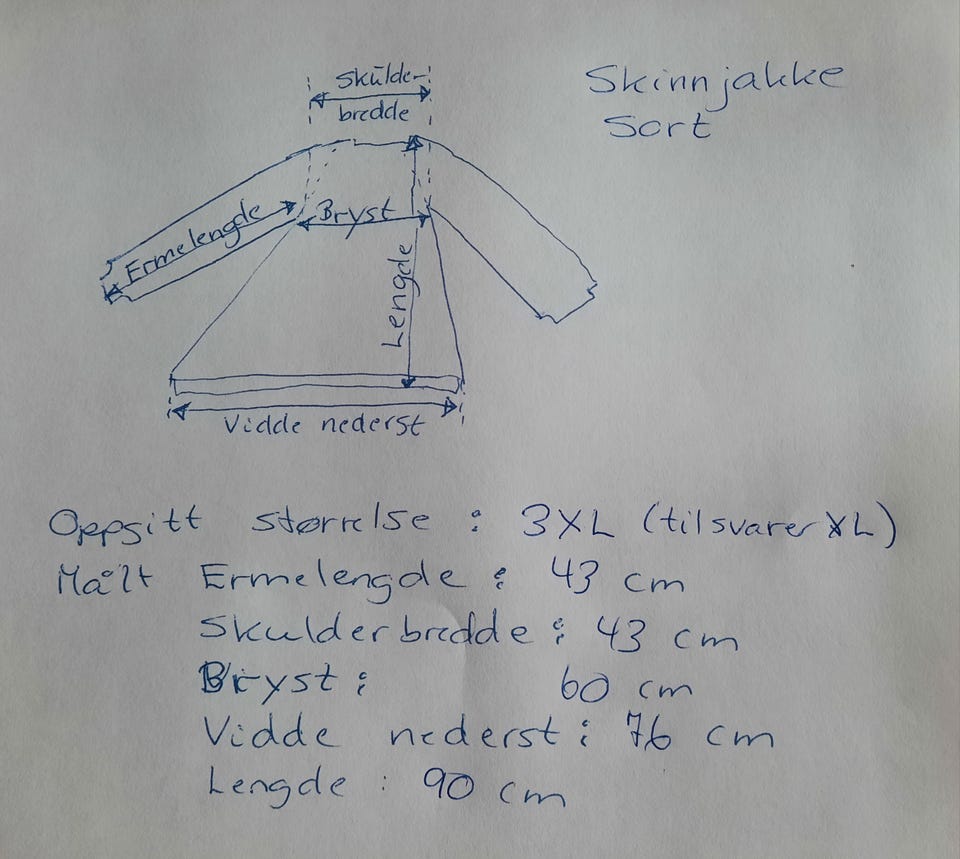 Skulder-
bredde
Skinnjakke
Sort
Ermelengde
Bryst
Lengde
Vidde nederst
Oppgitt størrelse : 3XL (tilsvarer XL)
Målt Ermelengde : 43 cm
Skulderbredde : 43 cm
Bryst : 60 cm
Vidde nederst : 76 cm
Lengde : 90 cm